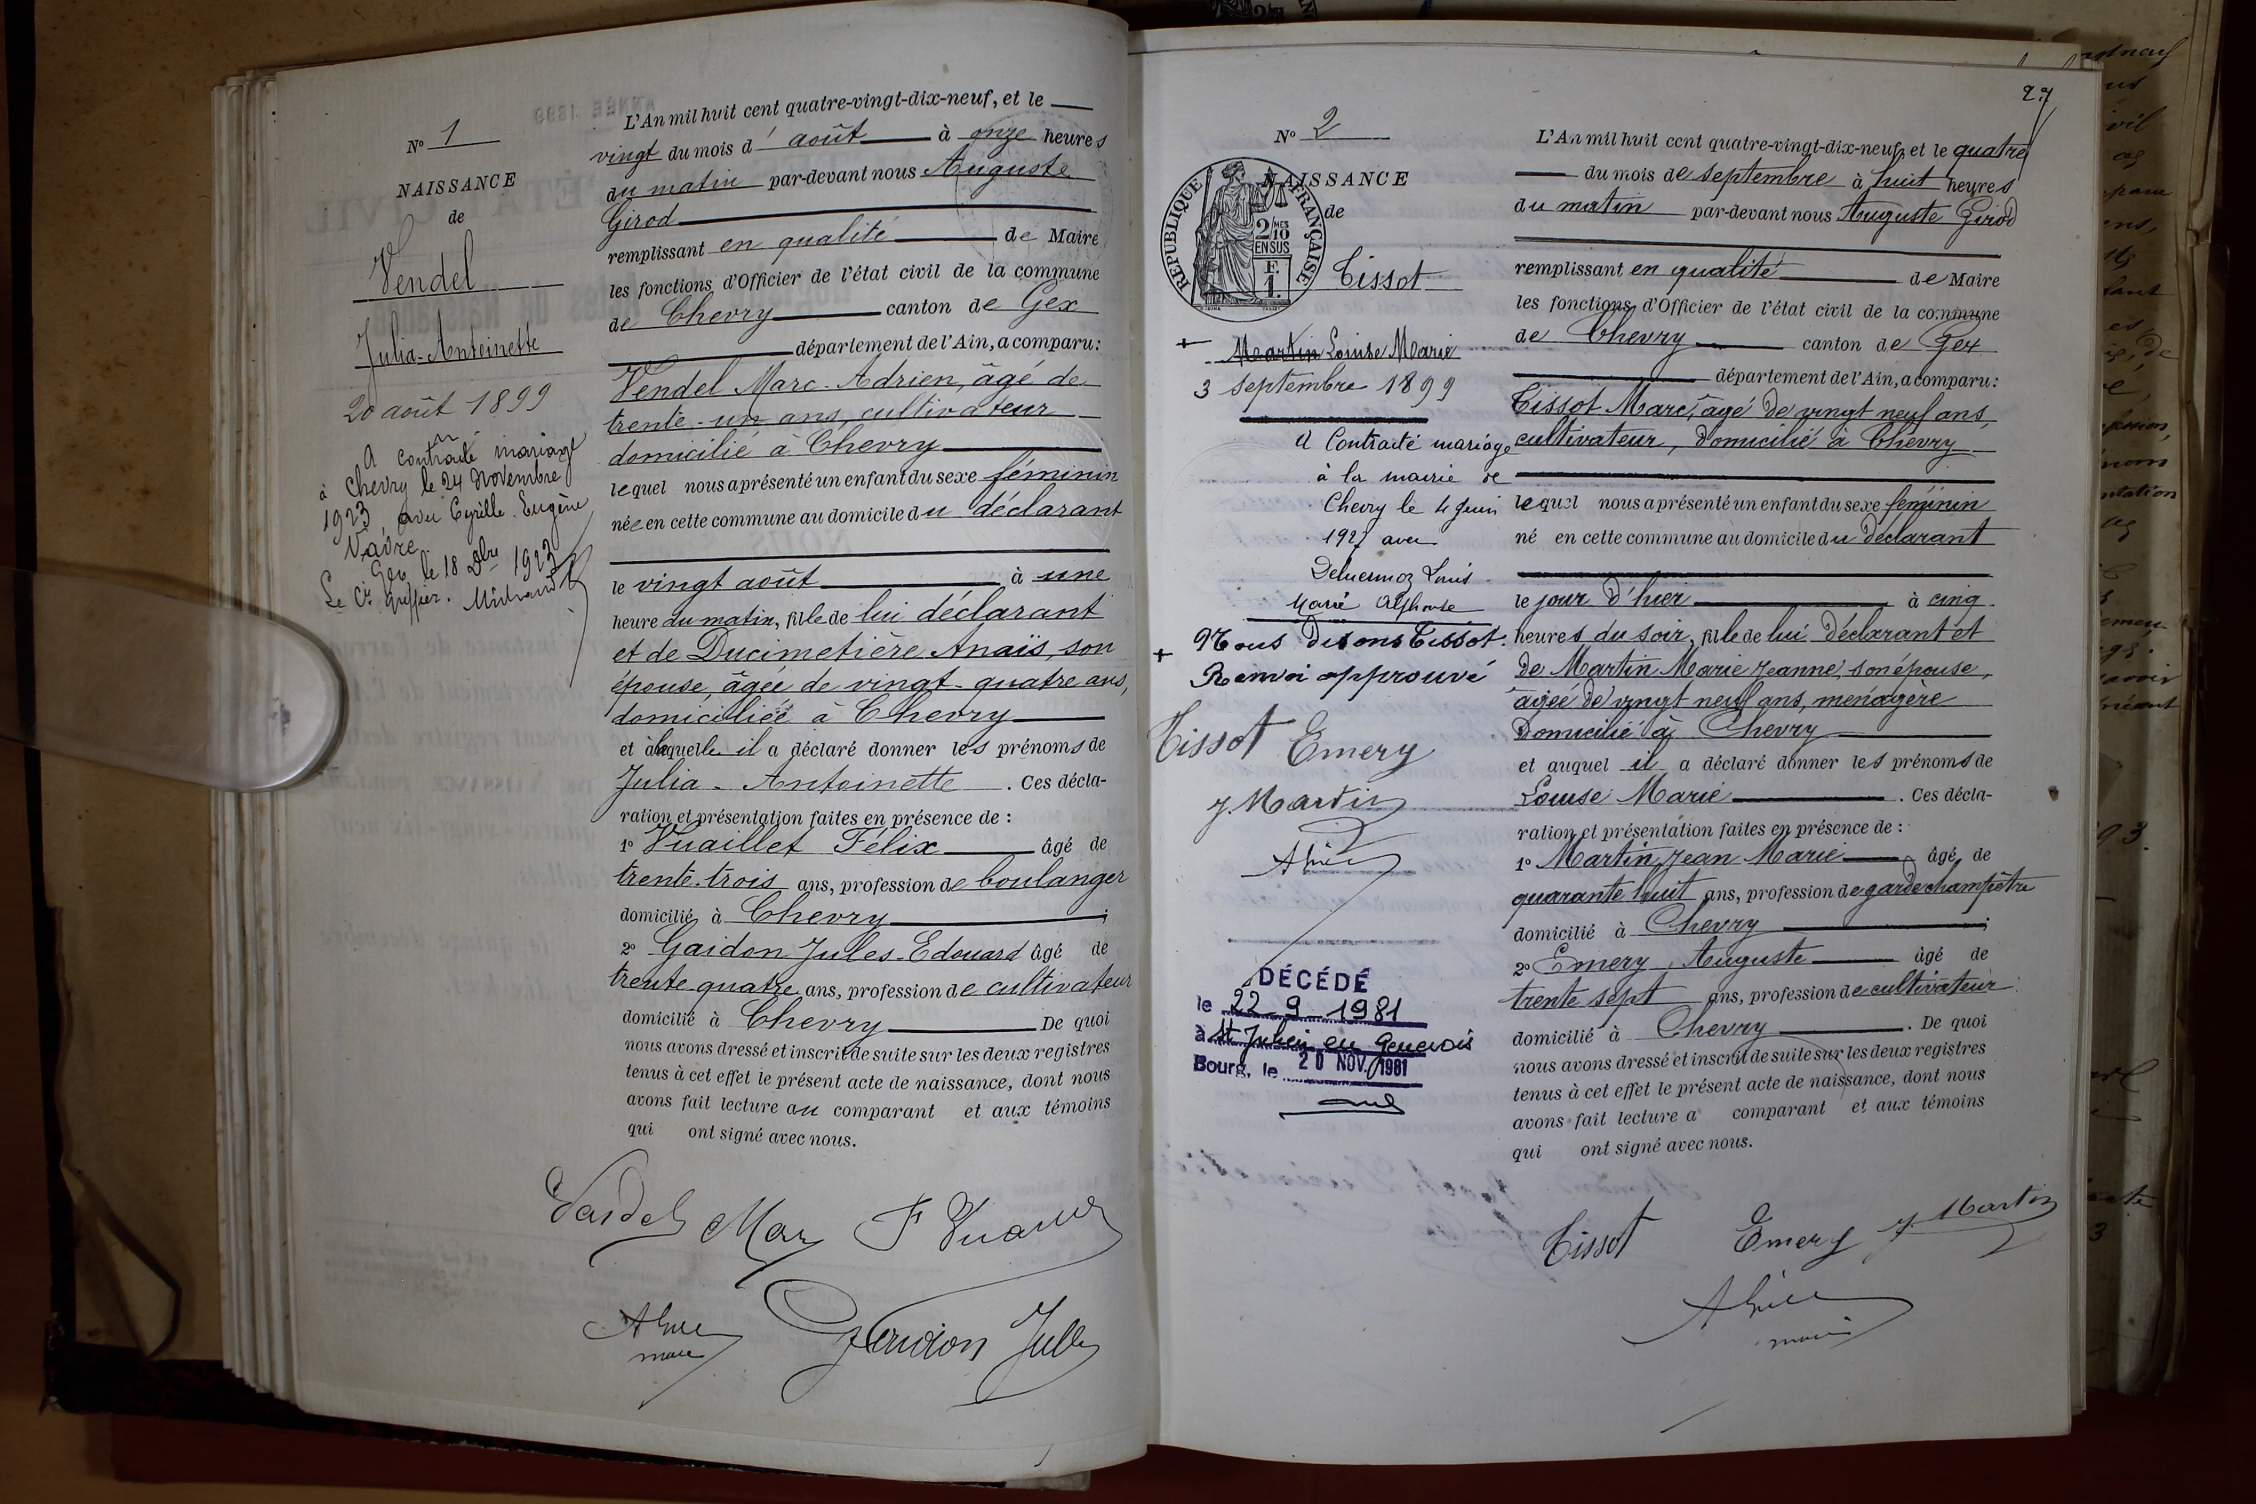 N° 1
NAISSANCE
de
Vendel
Julia-Antoinette
20 août 1899
A contracté mariage
à Chevry le 24 Novembre
1923, avec Cyrille Eugène
Vadre.
Gex le 18 Dbre 1923
Le Cis greffier.
L'An mil huit cent quatre-vingt-dix-neuf, et le
vingt du mois d'août à onze heures
du matin par-devant nous Auguste
Girod
remplissant en qualité de Maire
les fonctions d'Officier de l'état civil de la commune
de Chevry canton de Gex
département de l'Ain, a comparu:
Vendel Marc-Adrien, âgé de
trente-un ans, cultivateur
domicilié à Chevry
lequel nous a présenté un enfant du sexe féminin
née en cette commune au domicile du déclarant
le vingt août à une
heure du matin, fille de lui déclarant
et de Ducimetière Anaïs, son
épouse, âgée de vingt-quatre ans,
domiciliée à Chevry
et à laquelle il a déclaré donner les prénoms de
Julia-Antoinette. Ces décla-
ration et présentation faites en présence de :
1° Vuaillet Félix âgé de
trente-trois ans, profession de boulanger
domicilié à Chevry ;
2° Gaidon Jules-Edouard âgé de
trente-quatre ans, profession de cultivateur
domicilié à Chevry De quoi
nous avons dressé et inscrit de suite sur les deux registres
tenus à cet effet le présent acte de naissance, dont nous
avons fait lecture au comparant et aux témoins
qui ont signé avec nous.
Vendel Marc
maire
Jules
27
N° 2
NAISSANCE
de
RÉPUBLIQUE FRANÇAISE
2/MES
10
EN SUS
F.
1.
Tissot
+ Martin Louise Marie
3 septembre 1899
A Contracté mariage
à la mairie de
Chevry le 4 Juin
1927 avec
Deluermoz Louis
Marie Alphonse
+ Nous disons Tissot.
Renvoi approuvé
Tissot Emery
J. Martin
DÉCÉDÉ
le 22-9-1981
à St Julien en Genevois
Bourg, le 20 NOV. 1981
L'An mil huit cent quatre-vingt-dix-neuf, et le quatre
du mois de septembre à huit heures
du matin par-devant nous Auguste Girod
remplissant en qualité de Maire
les fonctions d'Officier de l'état civil de la commune
de Chevry canton de Gex
département de l'Ain, a comparu:
Tissot Marc, âgé de vingt neuf ans,
cultivateur, domicilié à Chevry
lequel nous a présenté un enfant du sexe féminin
né en cette commune au domicile du déclarant
le jour d'hier à cinq
heures du soir, fille de lui déclarant et
de Martin Marie Jeanne, son épouse,
âgée de vingt neuf ans, ménagère
domicilié à Chevry
et auquel il a déclaré donner les prénoms de
Louise Marie. Ces décla-
ration et présentation faites en présence de :
1° Martin, Jean Marie âgé de
quarante huit ans, profession de garde champêtre
domicilié à Chevry ;
2° Emery, Auguste âgé de
trente sept ans, profession de cultivateur
domicilié à Chevry. De quoi
nous avons dressé et inscrit de suite sur les deux registres
tenus à cet effet le présent acte de naissance, dont nous
avons fait lecture a comparant et aux témoins
qui ont signé avec nous.
Tissot Emery J. Martin
maire